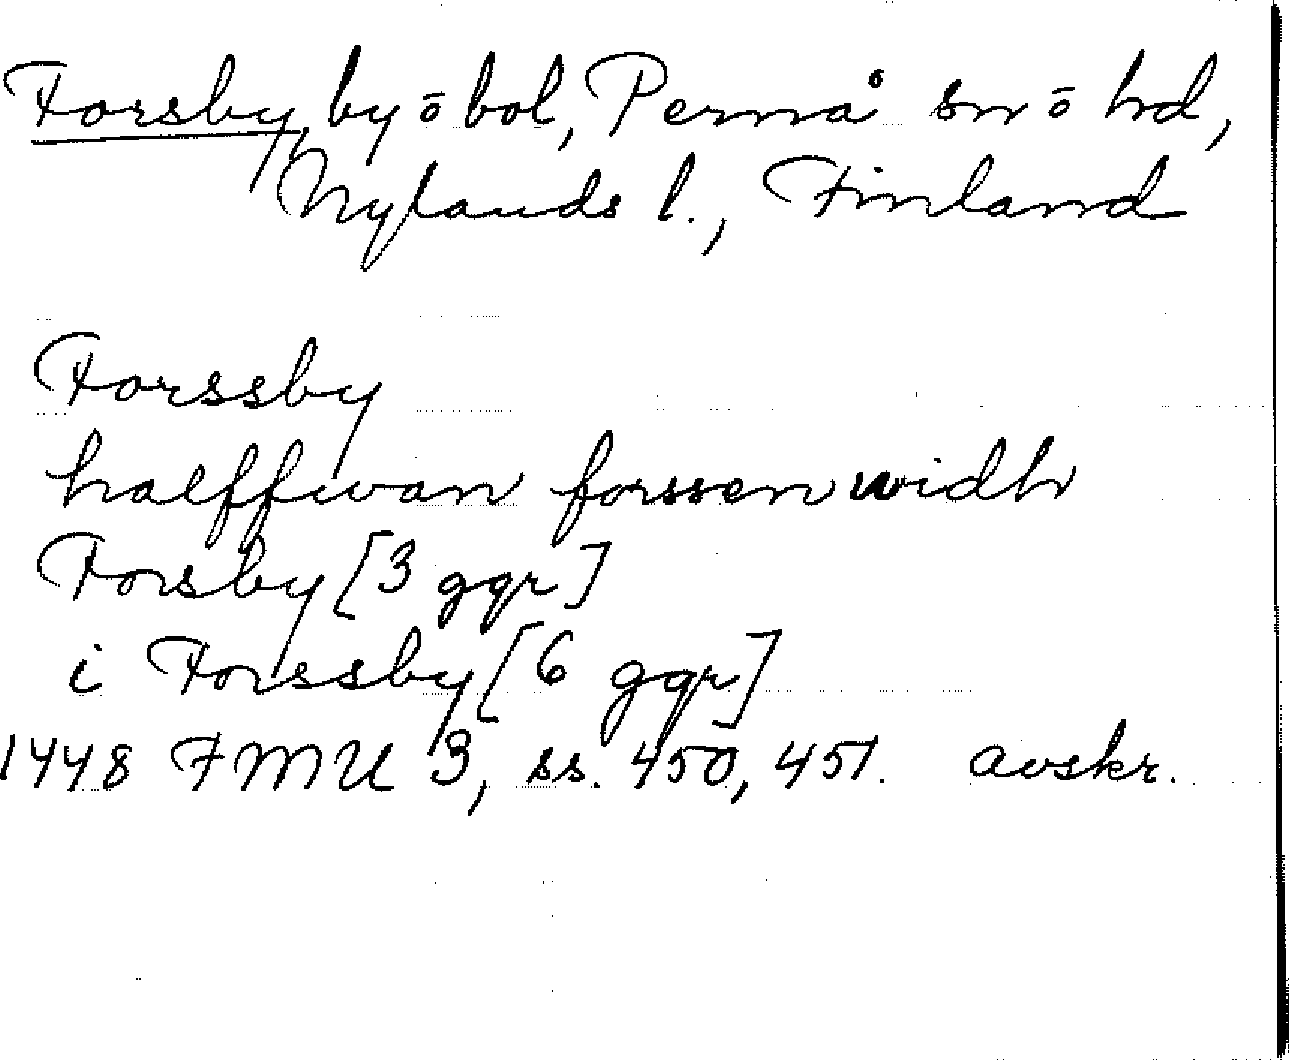 Forsby, by ō bol, Pernå sn ō hd,
Nylands l., Finland
Forssby
halffwan forssen widh
Forsby [3 ggr]
i Forssby [6 ggr]
1448 FMU 3, ss. 450, 451. avskr.